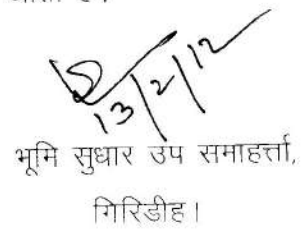 13/2/12
भूमि सुधार उप समाहर्त्ता,
गिरिडीह।